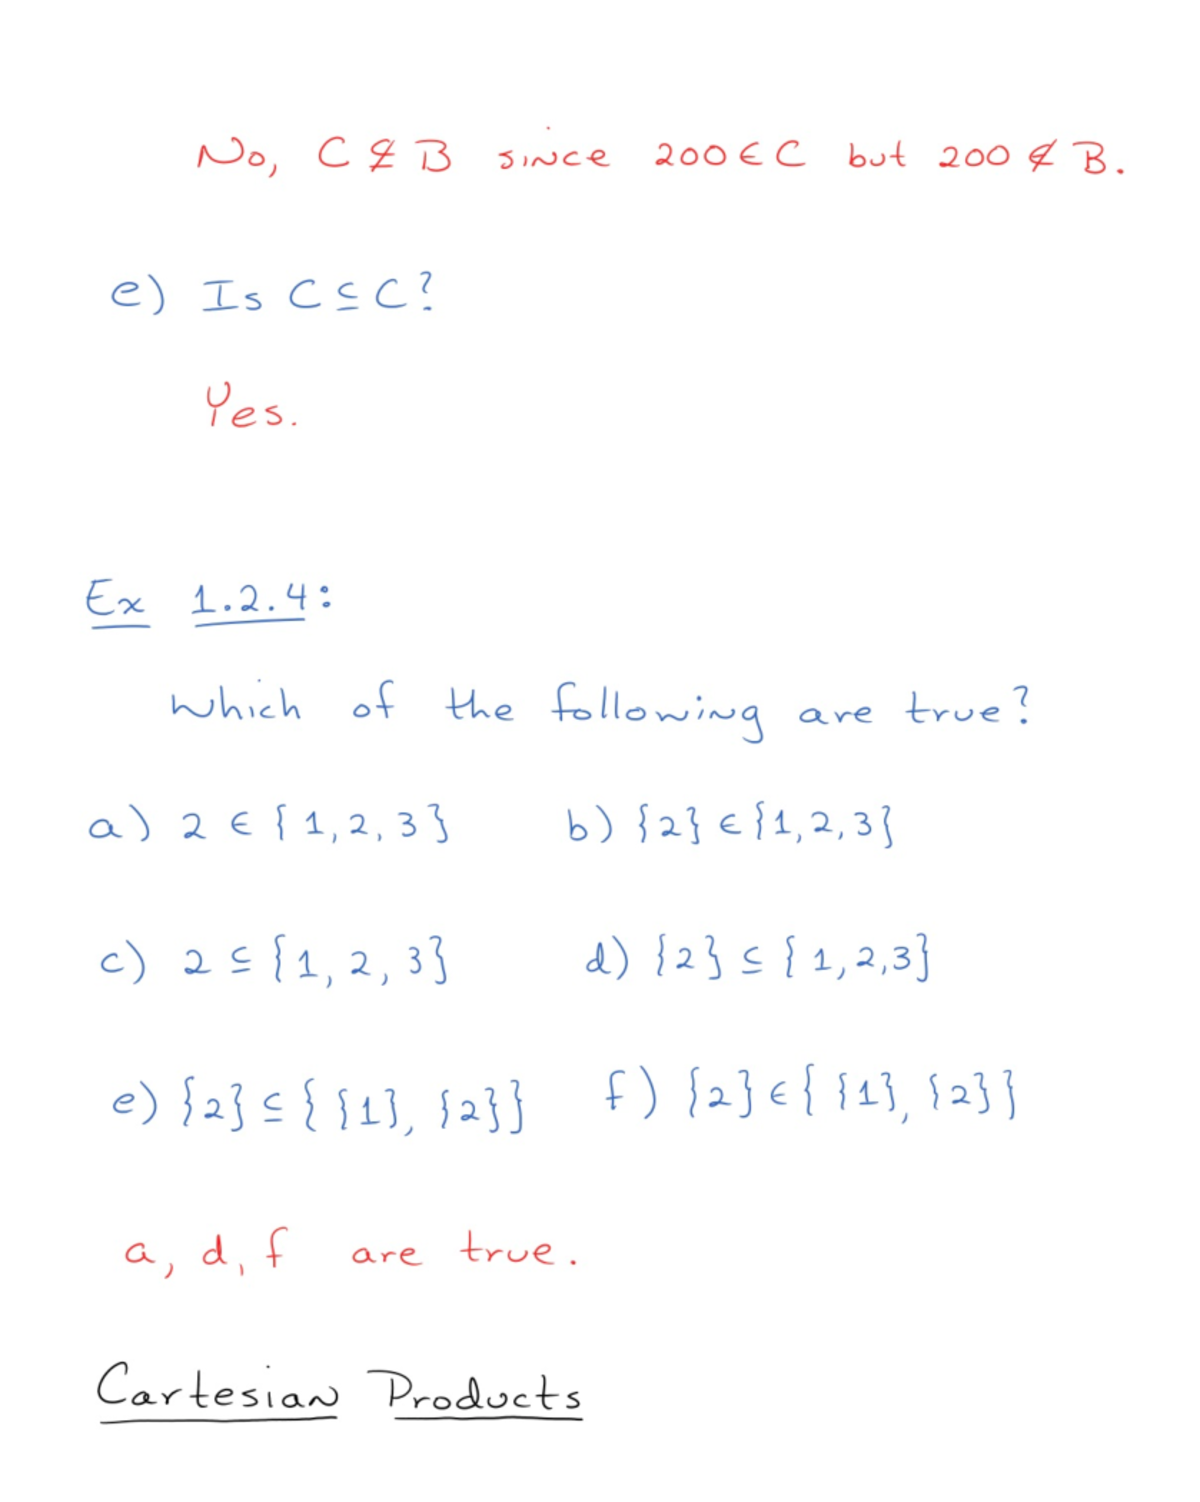 No, C ⊈ B since 200 ∈ C but 200 ∉ B.
e) Is C ⊆ C?
Yes.
Ex 1.2.4:
Which of the following are true?
a) 2 ∈ {1, 2, 3} b) {2} ∈ {1, 2, 3}
c) 2 ⊆ {1, 2, 3} d) {2} ⊆ {1, 2, 3}
e) {2} ⊆ { {1}, {2}} f) {2} ∈ { {1}, {2}}
a, d, f are true.
Cartesian Products